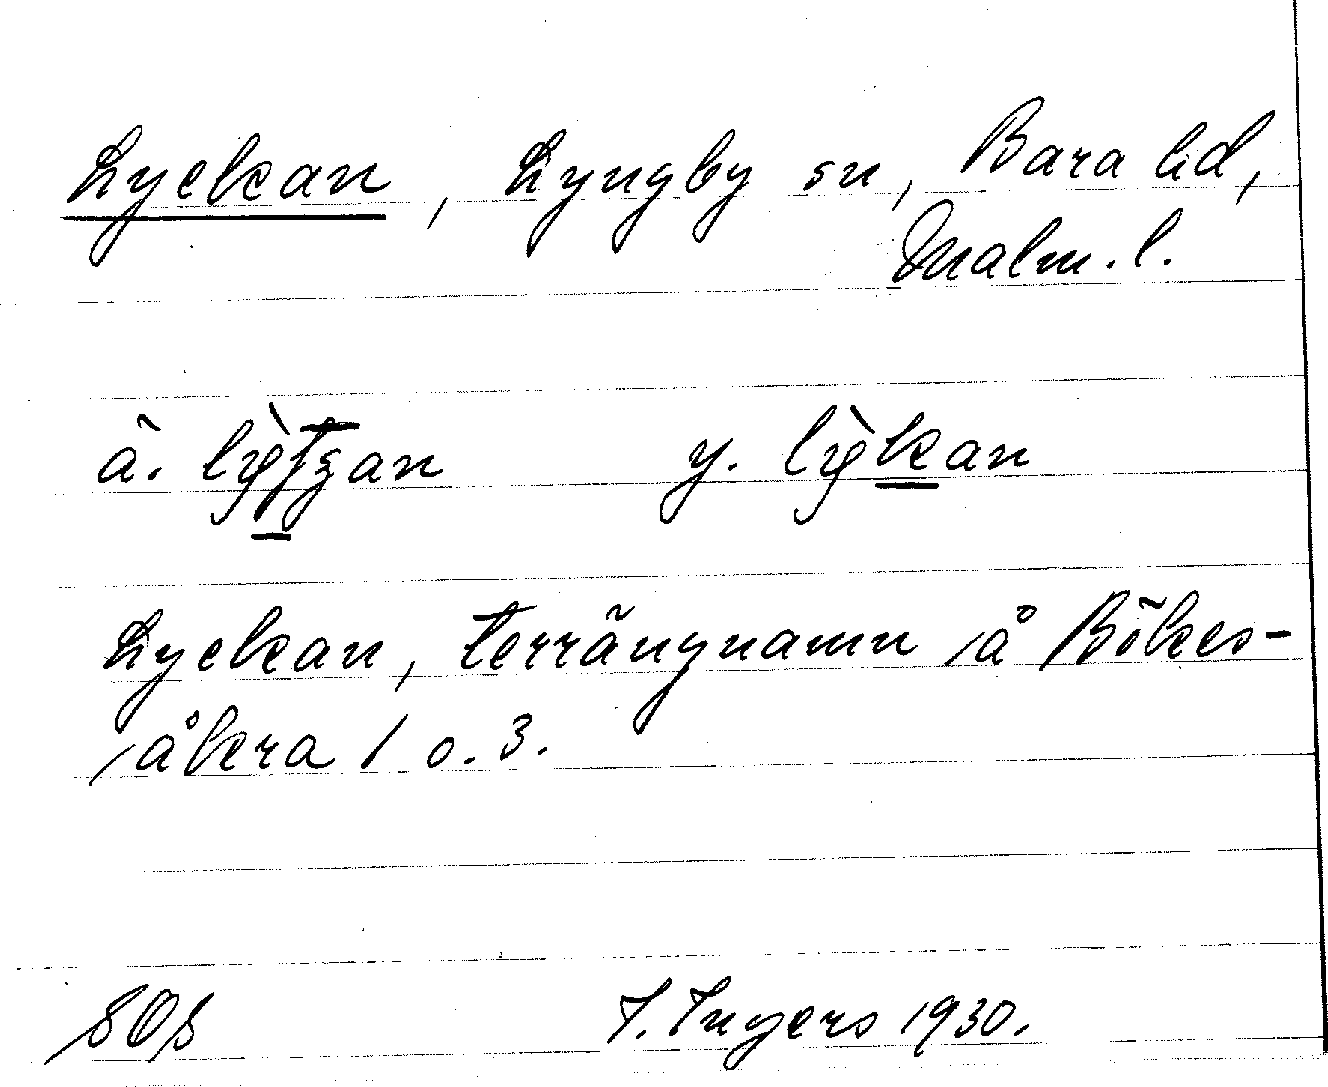 Lyckan, Lyngby sn, Bara hd,
Malm. l.
ä. y. lỳkan
Lyckan, terrängnamn å Bökes-
åkra 1 o. 3.
SOS I. Ingers 1930.